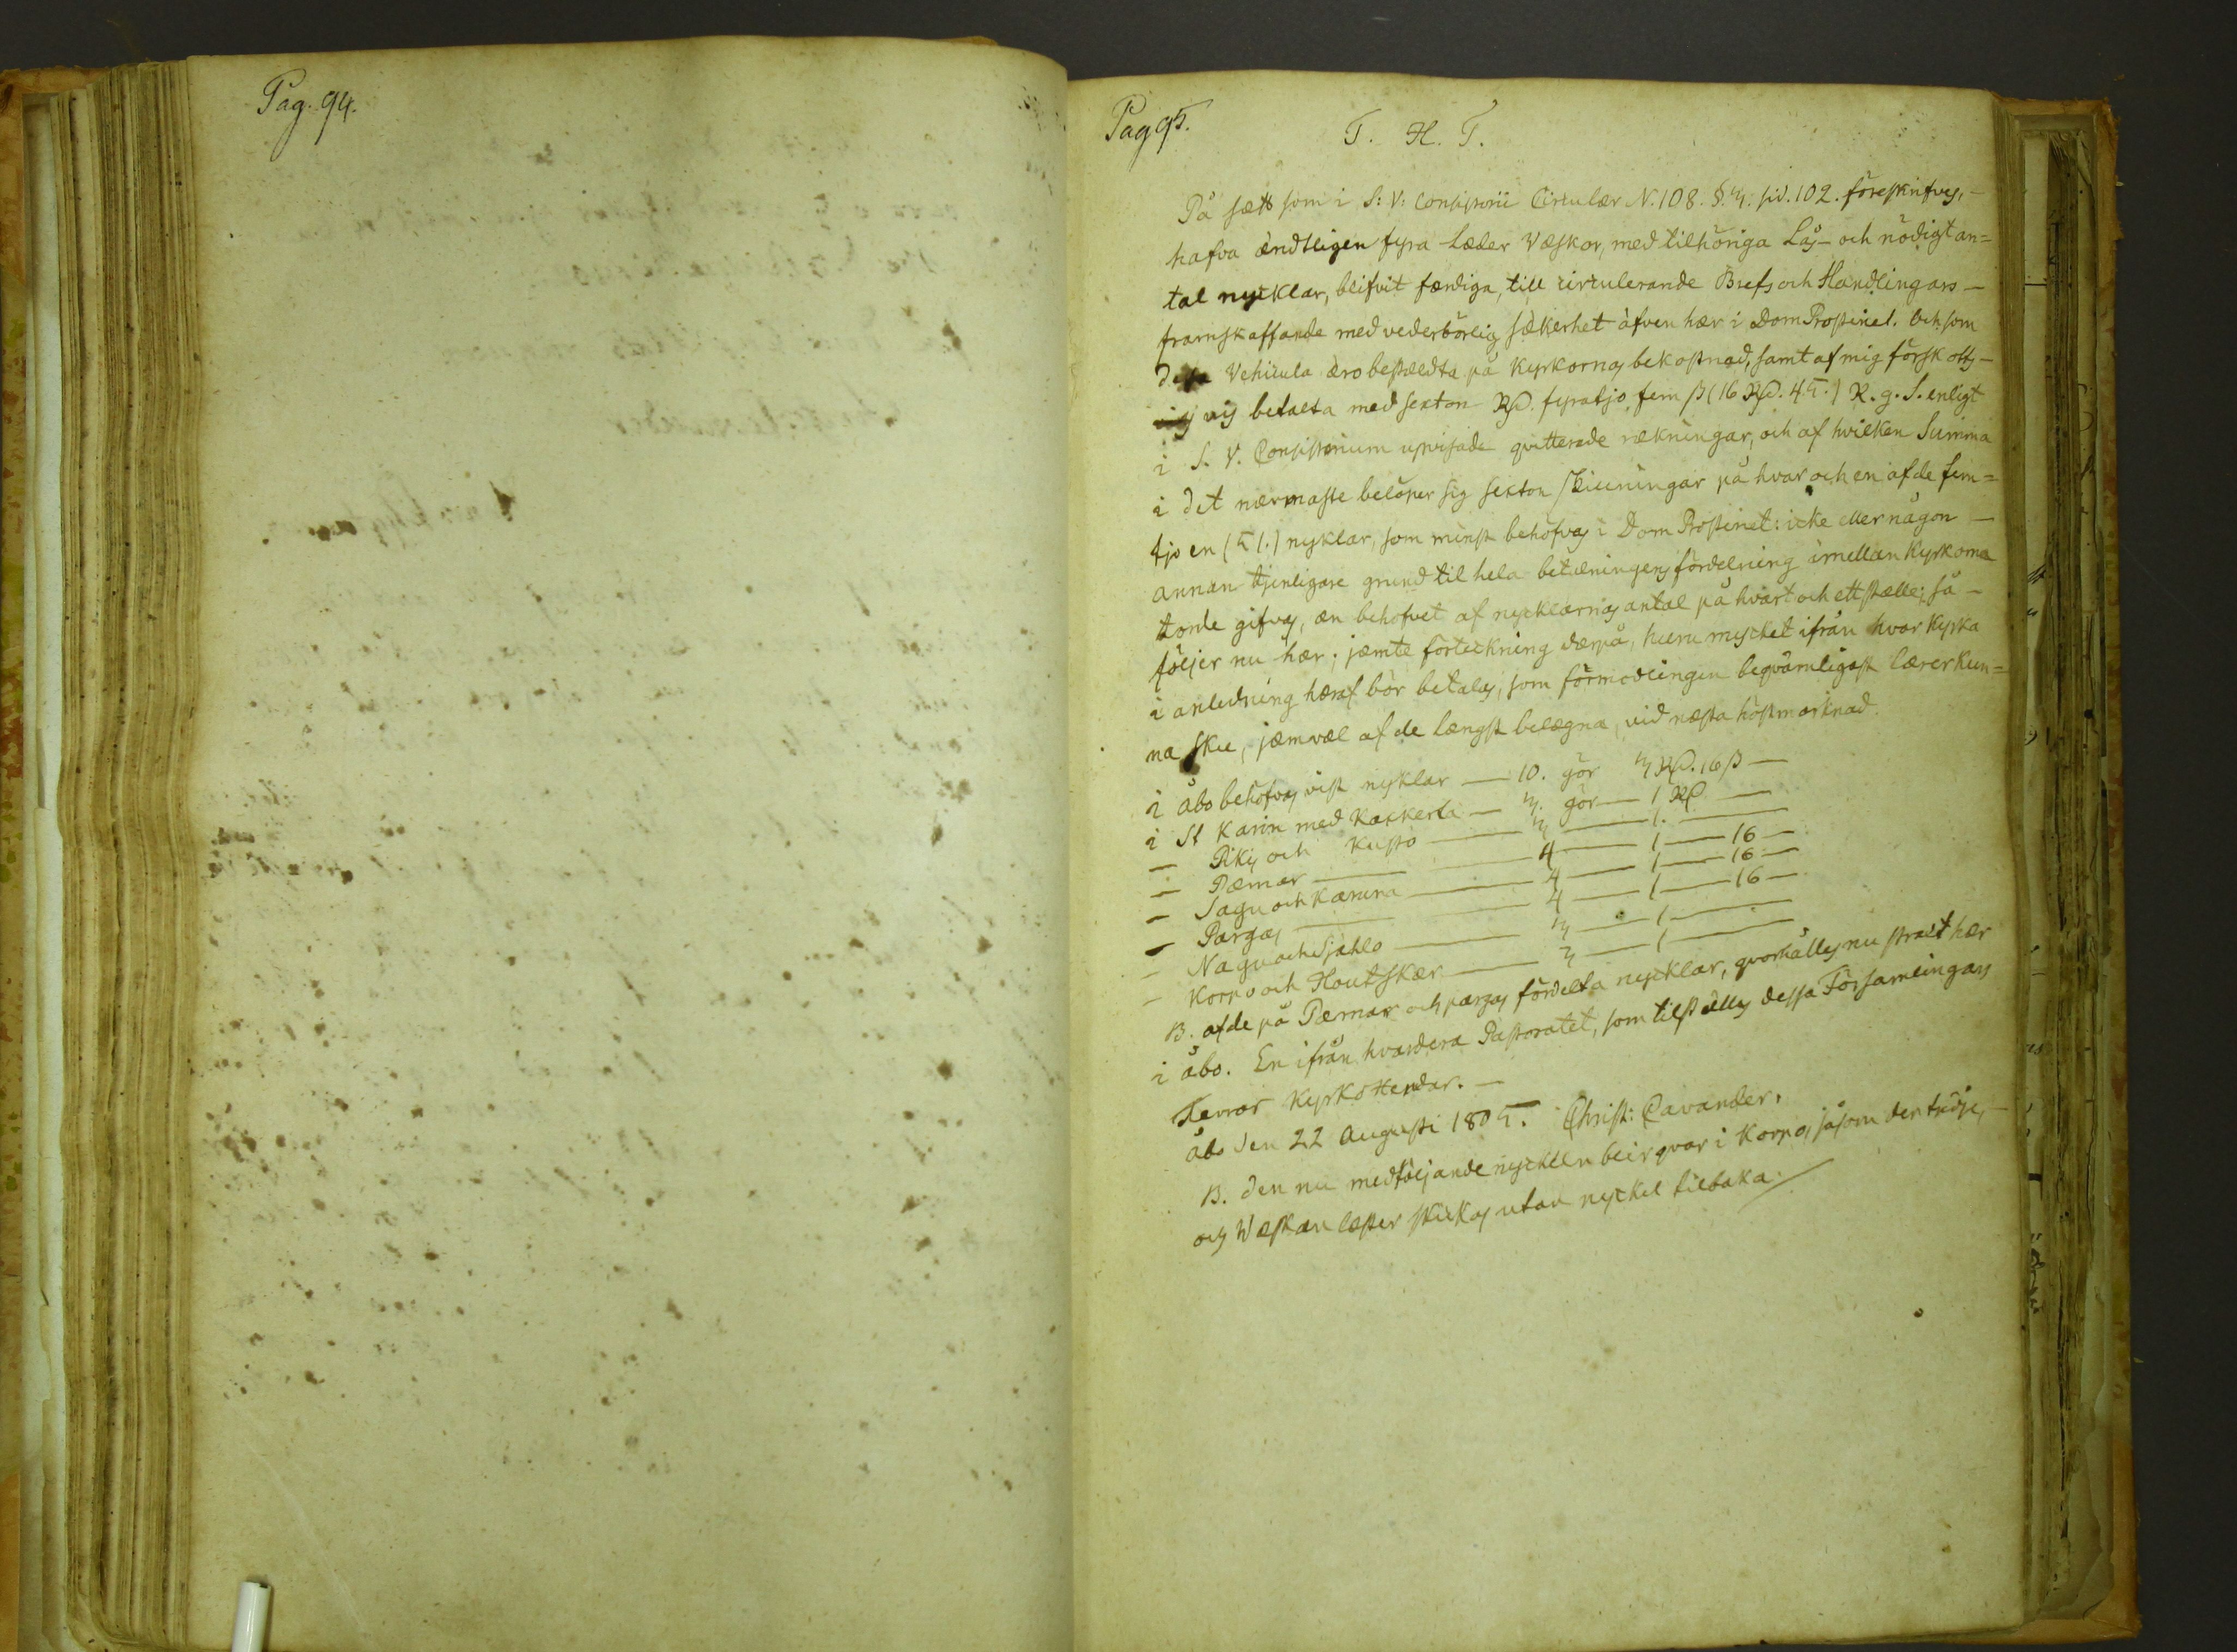 Pag. 94.
Pag 95.
T. H. T.
På sætt som i S: V: Consistorii Circulær N. 108. §. 4. sid. 102. föreskrifves, –
hafva ändtligen fyra Læder Væskor, med tilhöriga Lås – och nödigt an=
tal nycklar, blifvit færdiga, till circulerande Brefs och Handlingars –
framskaffande med vederbörlig säkerhet äfven hær i Dom Prostiriet. Och som
dessa Vehicula æro bestældta på Kyrkornas bekostnad, samt af mig förskotts –
vis betalta med sexton Rd. fyratjo fem ß (16 Rd. 45.) R. g. S. enligt
i S. V. Consistorium upvisade qvitterade rækningar, och af hvilken Summa
i det nærmaste belöper sig sexton skillningar på hvar och en af de fem=
tjo en (51.) nyklar, som minst behöfvas i Dom Prostiriet: icke eller någon –
annan tjenligare grund til hela betalningens fördelning imellan Kyrkorna
torde gifvas, æn behofvet af nycklarnas antal på hvart och ett stælle; så –
följer nu hær, jæmte förteckning dærpå, huru mycket ifrån hvar Kyrka
i anledning hæraf bör betalas, som förmodlingen beqvämligast lærer kun=
na ske, jæmvæl af de længst belægna, vid næsta höstmarknad
i åbo behöfvas vist nyklar — 10. gör 3 Rd. 16 ß —
i St Karin med Kakskerta — 3. gör — 1 Rd —
— Pikis och Kusto — 3 — 1. —
— Pæmar — 4 — 1 — 16 —
— Sagu och Karuna — 4 — 1 — 16 —
— Pargas — 4 — 1 — 16 —
— Nagu och Sjahlo — 3 — 1 —
— Korpo och Houtskær — 3 — 1 —
B. af de på Pæmar och pargas fördelta nycklar, qvarhålles nu straxt hær
i åbo. En ifrån hvardera Pastoratet, som tilställes dessa Församlingars
Herrar Kyrkoherdar. –
åbo den 22 Augusti 1805. Christ: Cavander.
B. den nu medföljande nyckeln blir qvar i Korpo, såsom den tridje, –
och Wæskan læster skickas utan nyckel tilbaka.